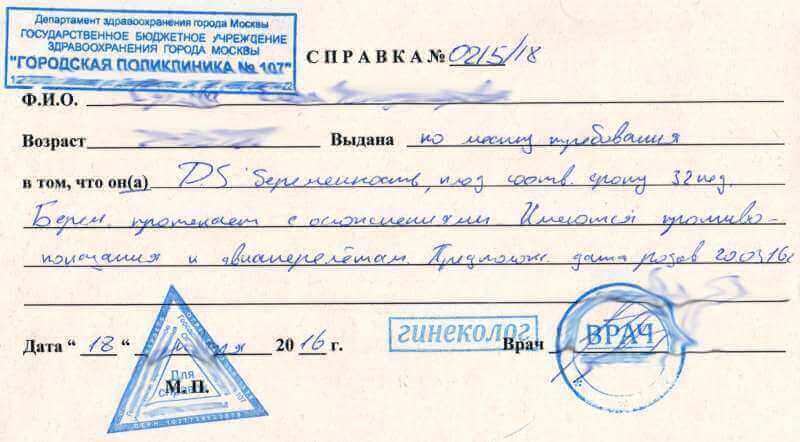 Департамент здравоохранения города Москвы
ГОСУДАРСТВЕННОЕ БЮДЖЕТНОЕ УЧРЕЖДЕНИЕ
ЗДРАВООХРАНЕНИЯ ГОРОДА МОСКВЫ
"ГОРОДСКАЯ ПОЛИКЛИНИКА № 107"
СПРАВКА № 0215/18
Ф.И.О.
Возраст Выдана по месту требования
в том, что он(а) D.S. беременность, плод соотв. сроку 32 нед.
Берем. протекает с осложнениями. Имеются противо-
показания к авиаперелётам. Предполож. дата родов 20.03.16г
Дата " 18 " 20 16 г. гинеколог Врач ВРАЧ
Для
справок
М. П.